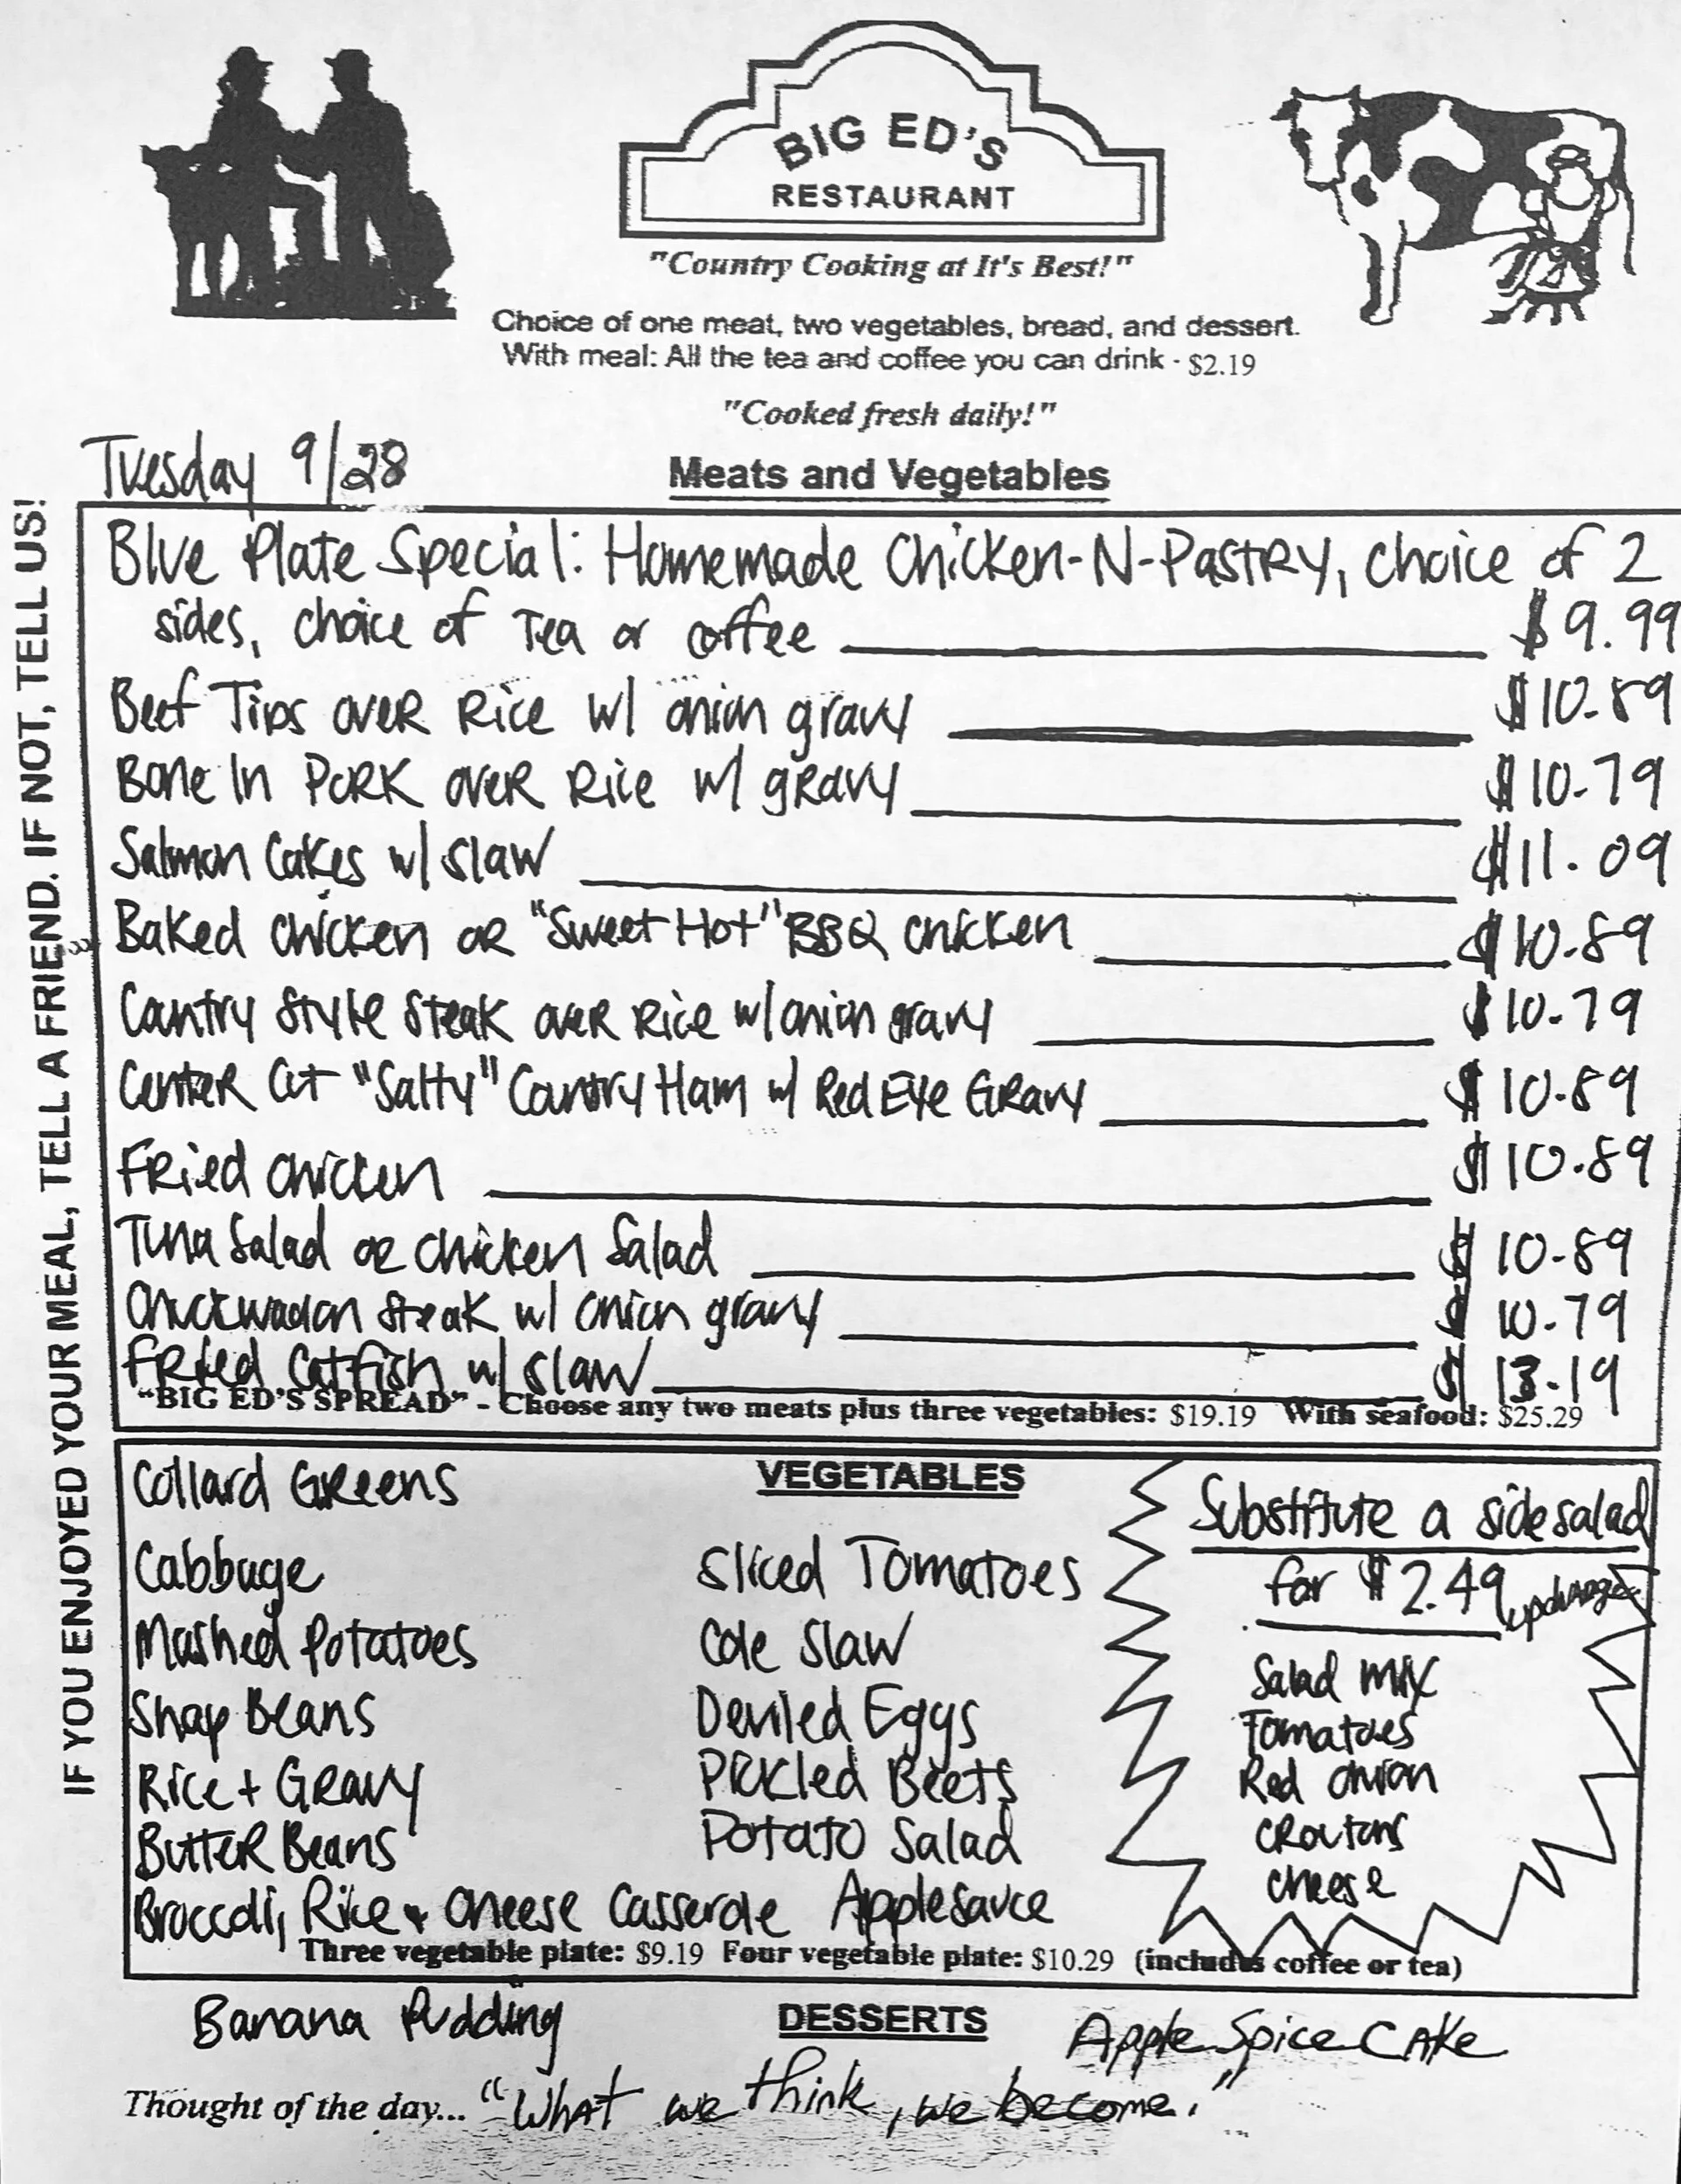 BIG ED'S
RESTAURANT
"Country Cooking at It's Best!"
Choice of one meat, two vegetables, bread, and dessert.
With meal: All the tea and coffee you can drink - $2.19
"Cooked fresh daily!"
Tuesday 9/28
Meats and Vegetables
IF YOU ENJOYED YOUR MEAL, TELL A FRIEND. IF NOT, TELL US!
Blue Plate Special: Homemade Chicken-N-Pastry, choice of 2
sides, choice of Tea or coffee $9.99
Beef Tips over Rice w/ onion gravy $10.89
Bone In Pork over Rice w/ gravy $10.79
Salmon Cakes w/ slaw $11.09
Baked chicken or "Sweet Hot" BBQ chicken $10.89
Country Style Steak over Rice w/ onion gravy $10.79
Center Cut "Salty" Country Ham w/ Red Eye Gravy $10.89
Fried chicken $10.89
Tuna Salad or chicken Salad $10.89
Chuckwagon steak w/ onion gravy $10.79
Fried Catfish w/ slaw $13.19
"BIG ED'S SPREAD" - Choose any two meats plus three vegetables: $19.19 With seafood: $25.29
VEGETABLES
Collard Greens
Cabbage
Mashed Potatoes
Snap Beans
Rice + Gravy
Butter Beans
Broccoli, Rice & Cheese Casserole
Sliced Tomatoes
Cole Slaw
Deviled Eggs
Pickled Beets
Potato Salad
Applesauce
Substitute a side salad
for $2.49 upcharge
Salad mix
Tomatoes
Red onion
croutons
cheese
Three vegetable plate: $9.19 Four vegetable plate: $10.29 (includes coffee or tea)
DESSERTS
Banana Pudding
Apple Spice Cake
Thought of the day... "What we think, we become."